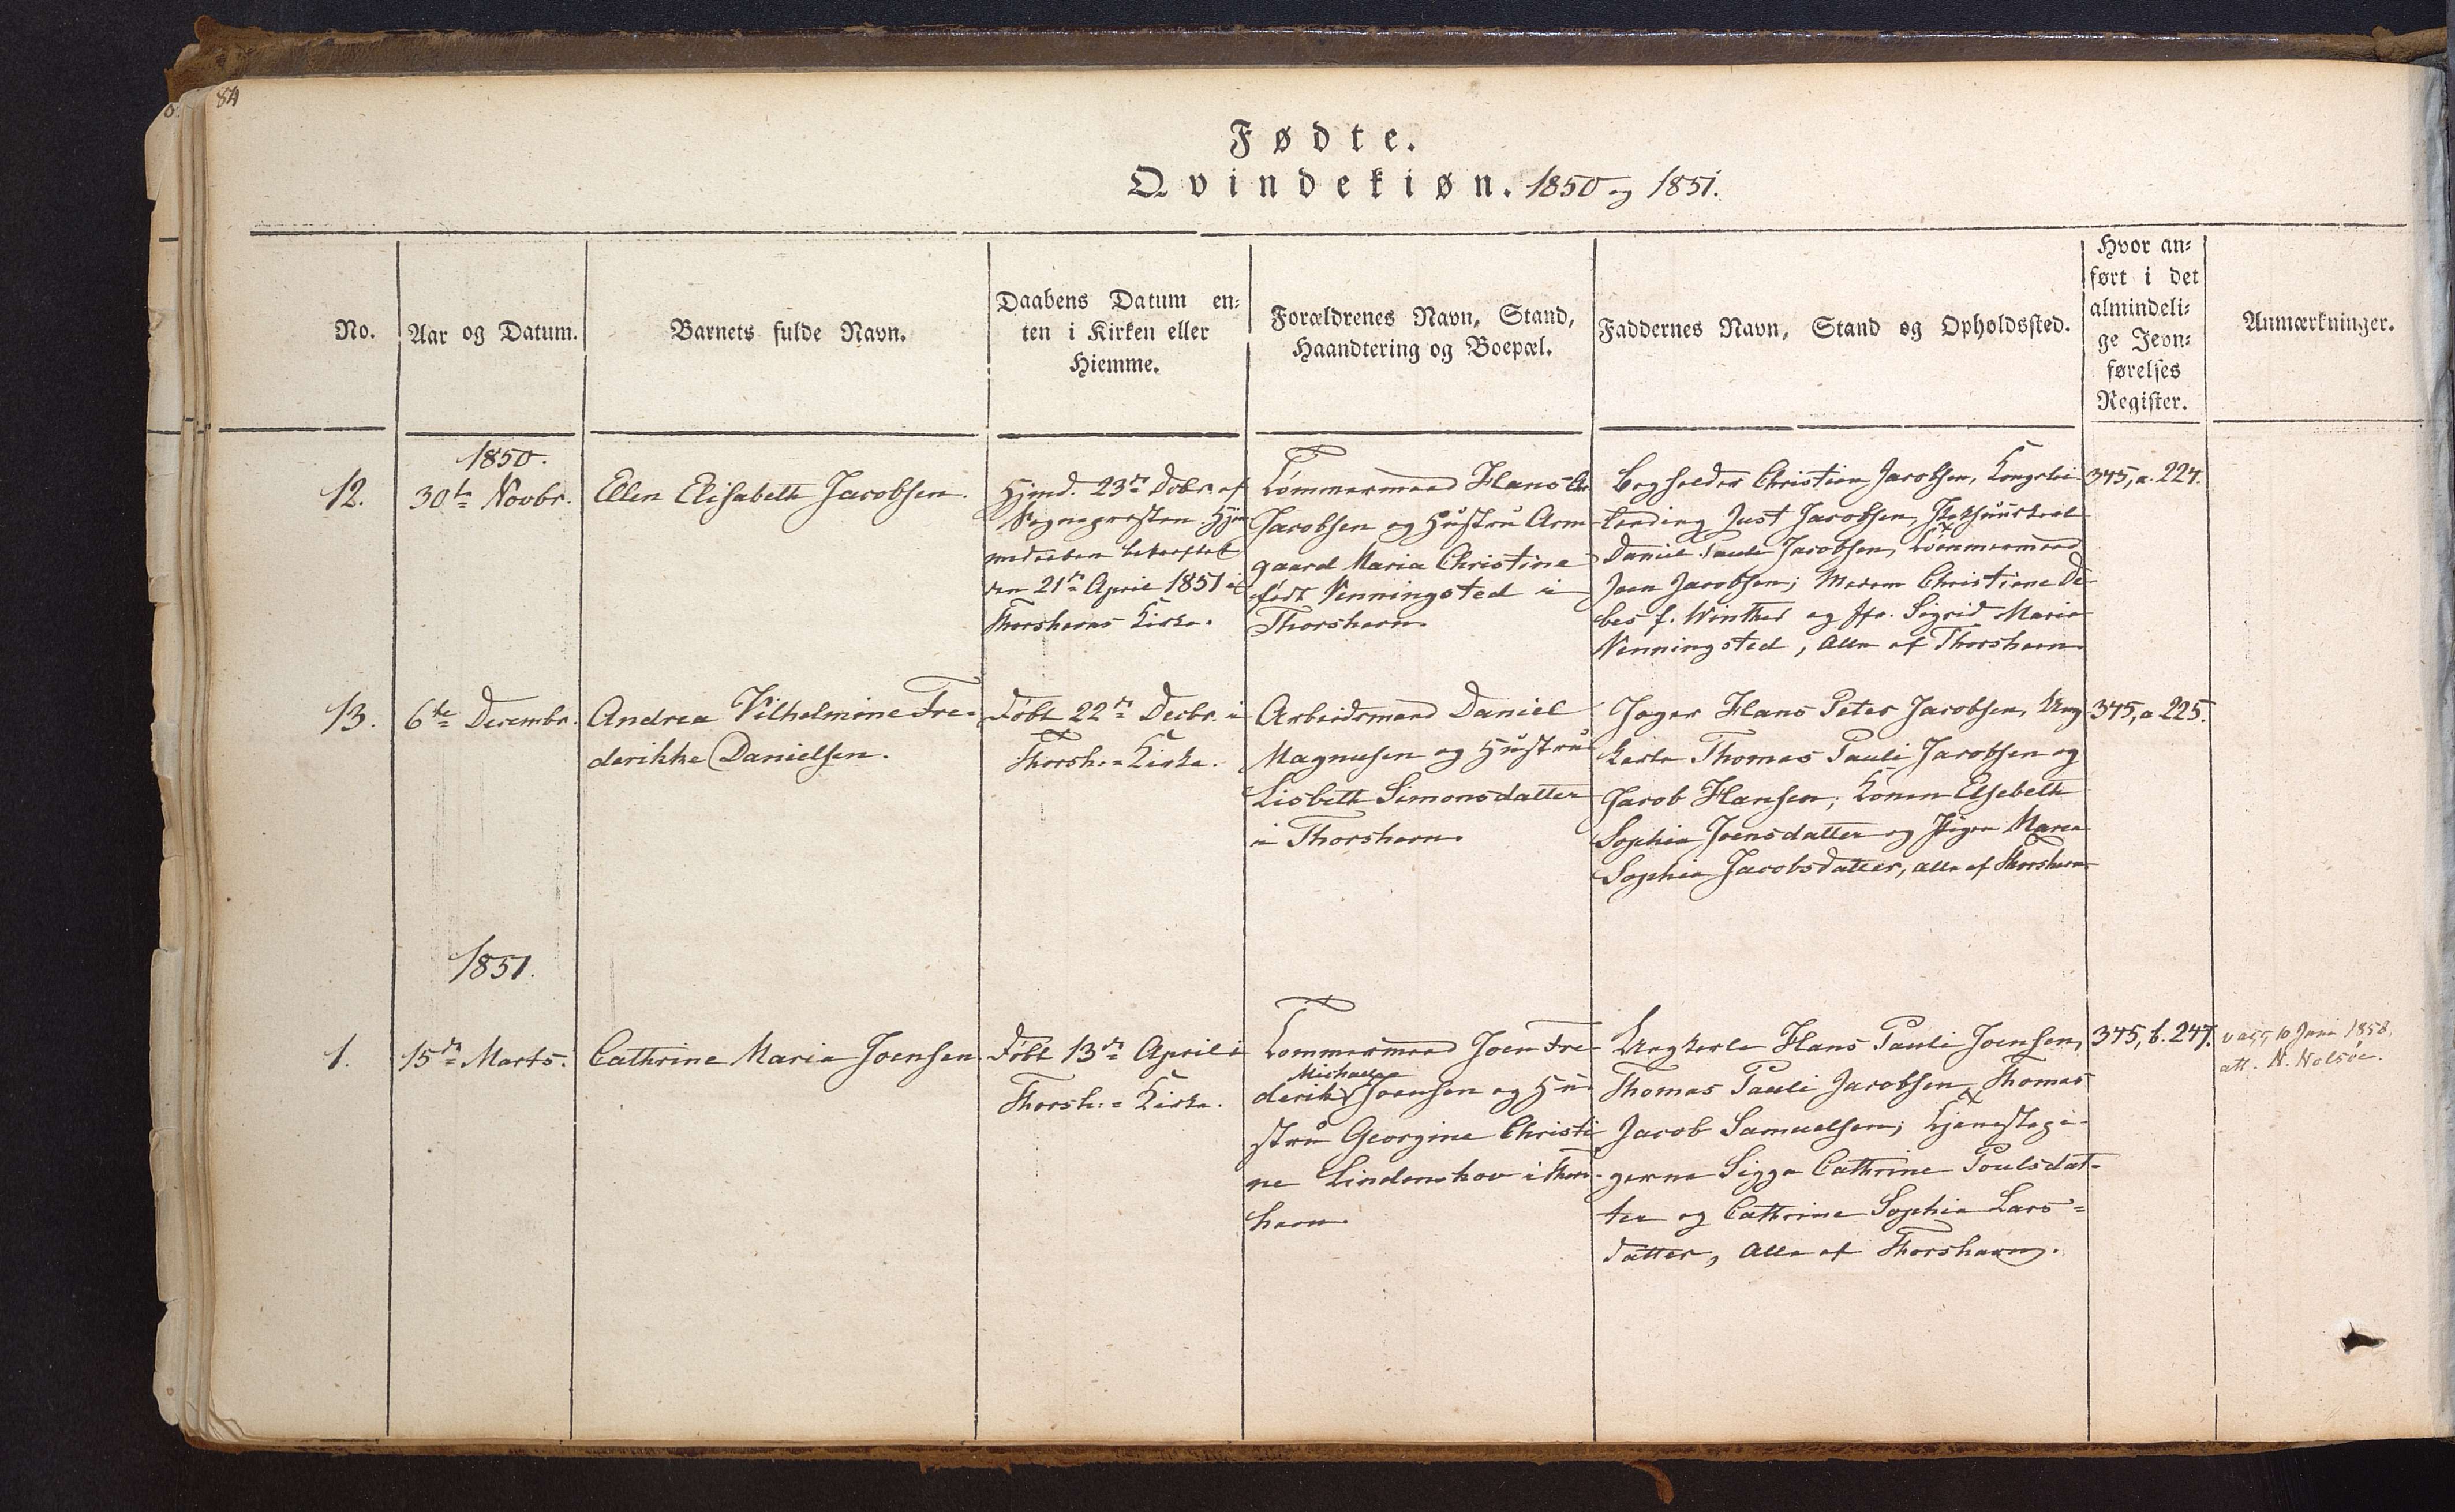 84
Fødte.
Qvindekiøn. 1850 og 1851.
No.
Aar og Datum.
Barnets fulde Navn.
Daabens Datum en-
ten i Kirken eller
Hiemme.
Forældrenes Navn, Stand,
Haandtering og Boepæl.
Faddernes Navn, Stand og Opholdssted.
Hvor an-
ført i det
almindeli-
ge Jevn-
førelses
Register.
Anmærkninger.
1850.
12.
30te Novbr.
Ellen Elisabeth Jacobsen.
Hjmd. 23de Decbr. af
Sognepræsten. Hjem-
medaaben bekræftet
den 21de April 1851 i
Thorshavns Kirke.
Tømmermand Hans Chr
Jacobsen og Hustru Arm-
gaard Maria Christine
født Wenningsted i
Thorshavn
Bogholder Christian Jacobsen,
Just Jacobsen,
Daniel Pauli Jacobsen, Tømmermand
Joen Jacobsen; Madam Christiane De-
bes f. Winther og Jfr. Sigrid Maria
Wenningsted, Alle af Thorshavn
345, a. 224.
13.
6te Decembr.
Andrea Vilhelmine Fre-
derikke Danielsen.
Døbt 22de Decbr. i
Thorsh:= Kirke.
Arbeidsmand Daniel
Magnusen og Hustru
Lisbeth Simonsdatter
i Thorshavn.
Jæger Hans Peter Jacobsen, Ung-
karle Thomas Pauli Jacobsen og
Jacob Hansen; Konen Elsebeth
Sophia Joensdatter og Pigen Maren
Sophia Jacobsdatter, alle af Thorshavn
345, a 225.
1851.
1.
15de Marts.
Cathrine Maria Joensen
Døbt 13de April i
Thorsh:= Kirke.
Tømmermand Joen Fre-
Michael
derik Joensen og Hu-
stru Georgine Christi-
ne Lindenskov i Thors-
havn.
Ungkarle Hans Pauli Joensen,
Thomas Pauli Jacobsen, Thomas
Jacob Samuelsen; Tjenestepi-
gerne Sigga Cathrine Poulsdat-
ter og Cathrine Sophia Lars=
datter, Alle af Thorshavn.
345, b. 247.
vacc, 10 Juni 1858,
att. N. Nolsöe.